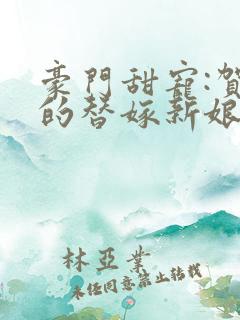 豪門甜寵:賀
的替嫁新娘
林亞業
未經同意禁止轉載